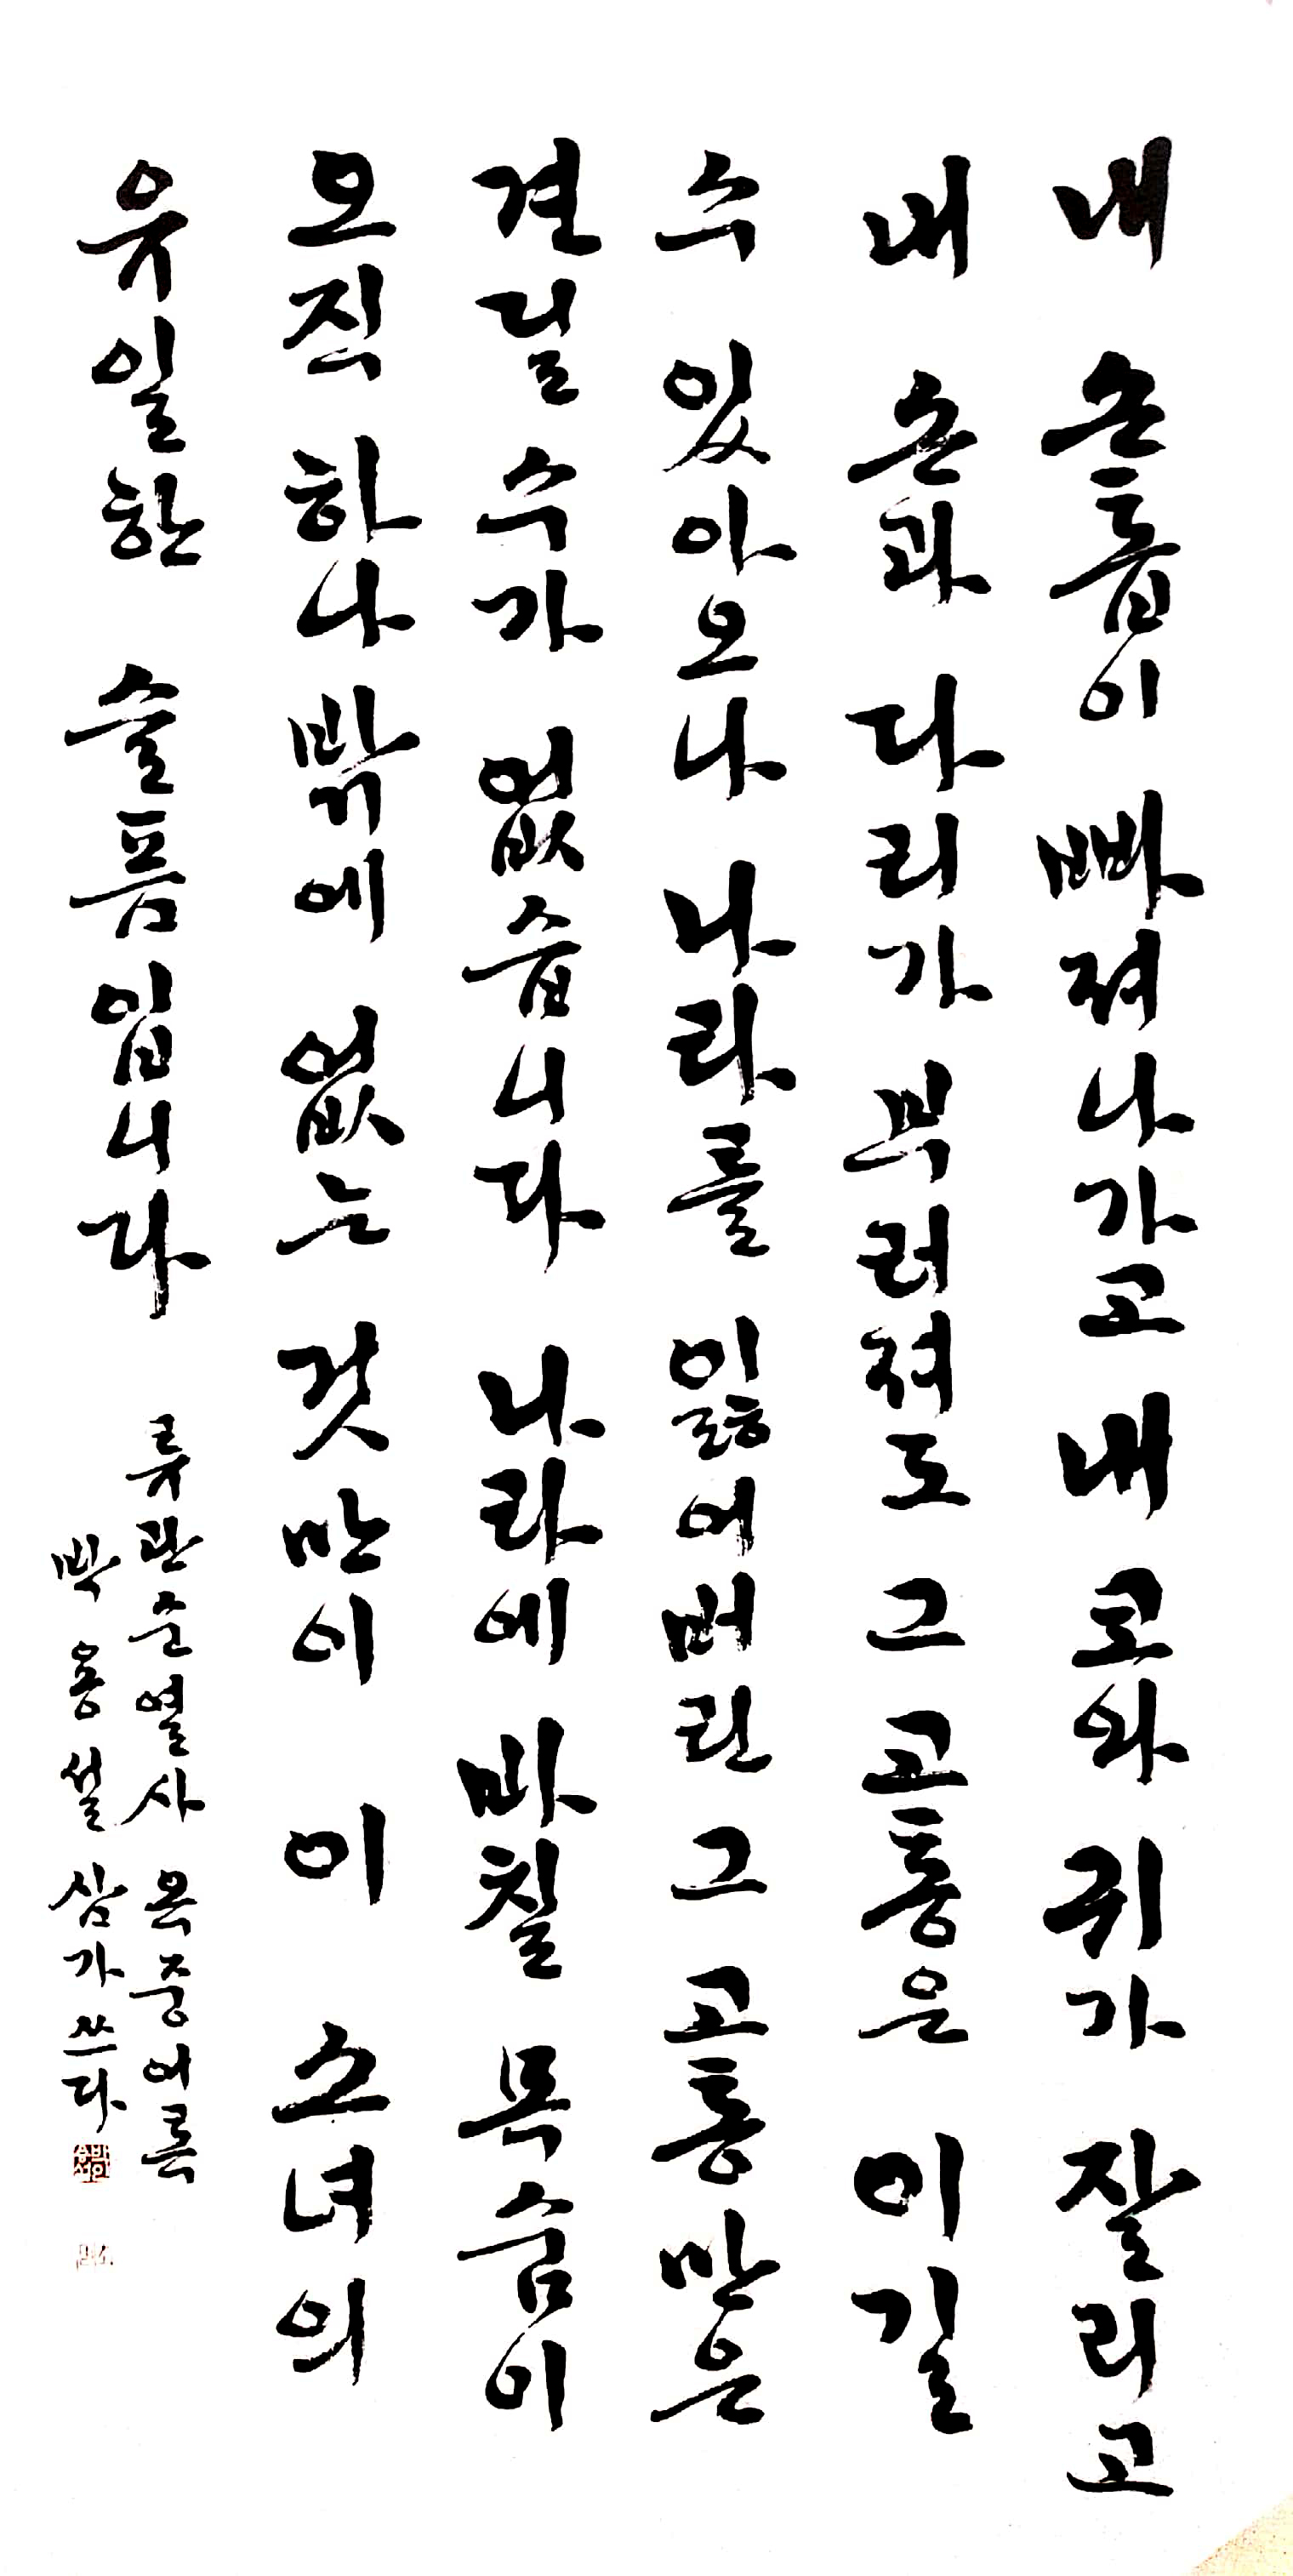 내 손톱이 빠져나가고 내 코와 귀가 잘리고
내 손과 다리가 부러져도 그 고통은 이길
수 있아오나 나라를 잃어버린 그 고통만은
견딜수가 없습니다 나라에 바칠 목숨이
오직 하나밖에 없는 것만이 이 소녀의
유일한 슬픔입니다
류관순열사 옥중어록
박용설 삼가쓰다